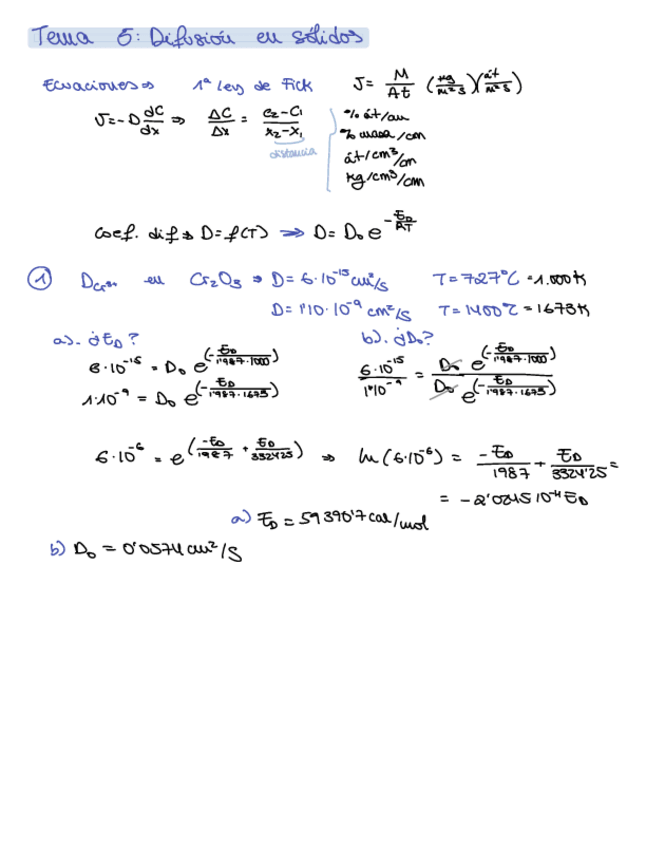 Tema 5: Difusión en sólidos
Ecuaciones ⇒ 1ª Ley de Fick J = M/At (kg/m²s)(át/m²s)
J = -D dC/dx ⇒ ΔC/Δx = C₂-C₁/x₂-x₁
distancia
% át/cm
% masa/cm
át/cm³/cm
kg/cm³/cm
coef. dif ⇒ D = f(T) ⇒ D = D₀ e^(-E_D/RT)
① D_Cr³⁺ en Cr₂O₃ ⇒ D = 6·10⁻¹⁵ cm²/s T = 727ºC = 1.000K
D = 1'10·10⁻⁹ cm²/s T = 1400ºC = 1673K
a). ¿E_D? b). ¿D₀?
6·10⁻¹⁵ = D₀ e^(-E_D/1'987·1000)
1·10⁻⁹ = D₀ e^(-E_D/1'987·1673)
6·10⁻¹⁵/1'10⁻⁹ = D₀ e^(-E_D/1'987·1000)/D₀ e^(-E_D/1'987·1673)
6·10⁻⁶ = e^(-E_D/1987 + E_D/3324'25) ⇒ ln(6·10⁻⁶) = -E_D/1987 + E_D/3324'25 =
= -2'0245·10⁻⁴ E_D
a) E_D = 59390'7 cal/mol
b) D₀ = 0'0574 cm²/s